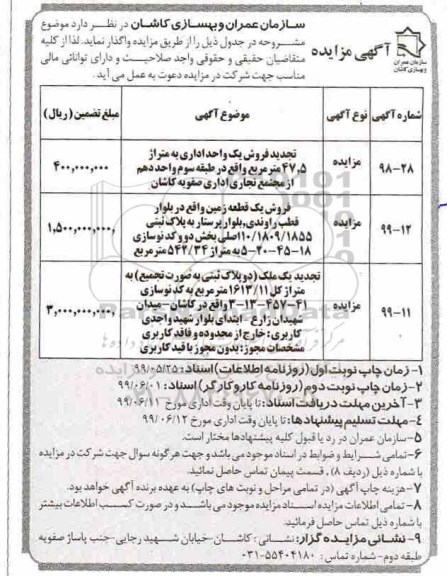 سازمان عمران
وبهسازی کاشان
آگهی مزایده
سازمان عمران و بهسازی کاشان در نظر دارد موضوع
مشروحه در جدول ذیل را از طریق مزایده واگذار نماید. لذا از کلیه
متقاضیان حقیقی و حقوقی واجد صلاحیت و دارای توانائی مالی
مناسب جهت شرکت در مزایده دعوت به عمل می آید.
شماره آگهی نوع آگهی موضوع آگهی مبلغ تضمین (ریال)
۹۸-۲۸ مزایده تجدید فروش یک واحد اداری به متراژ
۴۷,۵ متر مربع واقع در طبقه سوم واحد دهم
از مجتمع تجاری اداری صفویه کاشان
۴۰۰,۰۰۰,۰۰۰
۹۹-۱۲ مزایده فروش یک قطعه زمین واقع در بلوار
قطب راوندی، بلوار پرستار به پلاک ثبتی
۱۱۰/۱۸۰۹/۱۸۵۵ اصلی بخش دو و کد نوسازی
۱۸-۴۵-۲۰-۵ به متراژ ۵۴۲/۳۴ متر مربع
۱,۵۰۰,۰۰۰,۰۰۰,
۹۹-۱۱ مزایده تجدید یک ملک (دو پلاک ثبتی به صورت تجمیع) به
متراژ کل ۱۶۱۳/۱۱ متر مربع به کد نوسازی
۴۱-۴۵۷-۱۳-۳ واقع در کاشان - میدان
شهیدان زارع - ابتدای بلوار شهید واجدی
کاربری: خارج از محدوده و فاقد کاربری
مشخصات مجوز: بدون مجوز با قید کاربری
۳,۰۰۰,۰۰۰,۰۰۰,
۱- زمان چاپ نوبت اول (روزنامه اطلاعات) اسناد: ۹۹/۰۵/۲۵
۲- زمان چاپ نوبت دوم (روزنامه کار و کارگر) اسناد: ۹۹/۰۶/۰۱
۳- آخرین مهلت دریافت اسناد: تا پایان وقت اداری مورخ ۹۹/۰۶/۱۱
۴- مهلت تسلیم پیشنهادها: تا پایان وقت اداری مورخ ۹۹/۰۶/۱۲
۵- سازمان عمران در رد یا قبول کلیه پیشنهادها مختار است.
۶- تمامی شرایط و ضوابط در اسناد موجود می باشد و جهت هر گونه سوال جهت شرکت در مزایده
با شماره ذیل (ردیف ۸)، قسمت پیمان تماس حاصل نمائید.
۷- هزینه چاپ آگهی (در تمامی مراحل و نوبت های چاپ) به عهده برنده آگهی خواهد بود.
۸- تمامی اطلاعات مزایده اسناد مزایده موجود می باشد و در صورت کسب اطلاعات بیشتر
با شماره ذیل تماس حاصل فرمائید.
۹- نشانی مزایده گزار: نشانی: کاشان - خیابان شهید رجایی - جنب پاساژ صفویه
طبقه دوم - شماره تماس: ۵۵۴۰۴۱۸۰-۰۳۱